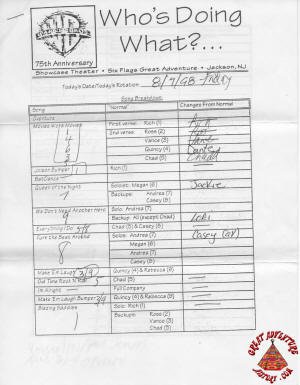 Who's Doing
What?...
75th Anniversary
Showcase Theater • Six Flags Great Adventure • Jackson, NJ
Today's Date/Today's Rotation: 8/7/98 - Friday
Song Breakdown:
Song Changes From Normal
Overture
Movies Movie Movies First verse: Rich (1) Rich
1 2nd verse: Ross (2)
Vance (3)
6 Quincy (4)
3 Chad (5) Chad
Joison Bumper 1 Rich (1)
BatDance
Queen of the Night Soloist: Megan (6) Jackie
7 Backups: Andrea (7)
Casey (8)
We Don't Need Another Hero Solo: Andrea (7)
9 Backup: All (except Chad) Lori
Everything I Do Chad (5) & Casey (8)
Turn the Beat Around Solos: Andrea (7) Casey
8 Megan (6)
Andrea (7)
Casey (8)
Make 'Em Laugh 3/9 Quincy (4) & Rebecca (9)
Old Time Rock N Roll Chad (5)
I'm Alright Full Company
Make 'Em Laugh Bumper 3/9 Quincy (4) & Rebecca (9)
Blazing Saddles Solo: Rich (1)
1 Backups: Ross (2)
Vance (3)
Chad (5)
GREAT ADVENTURE
HISTORY